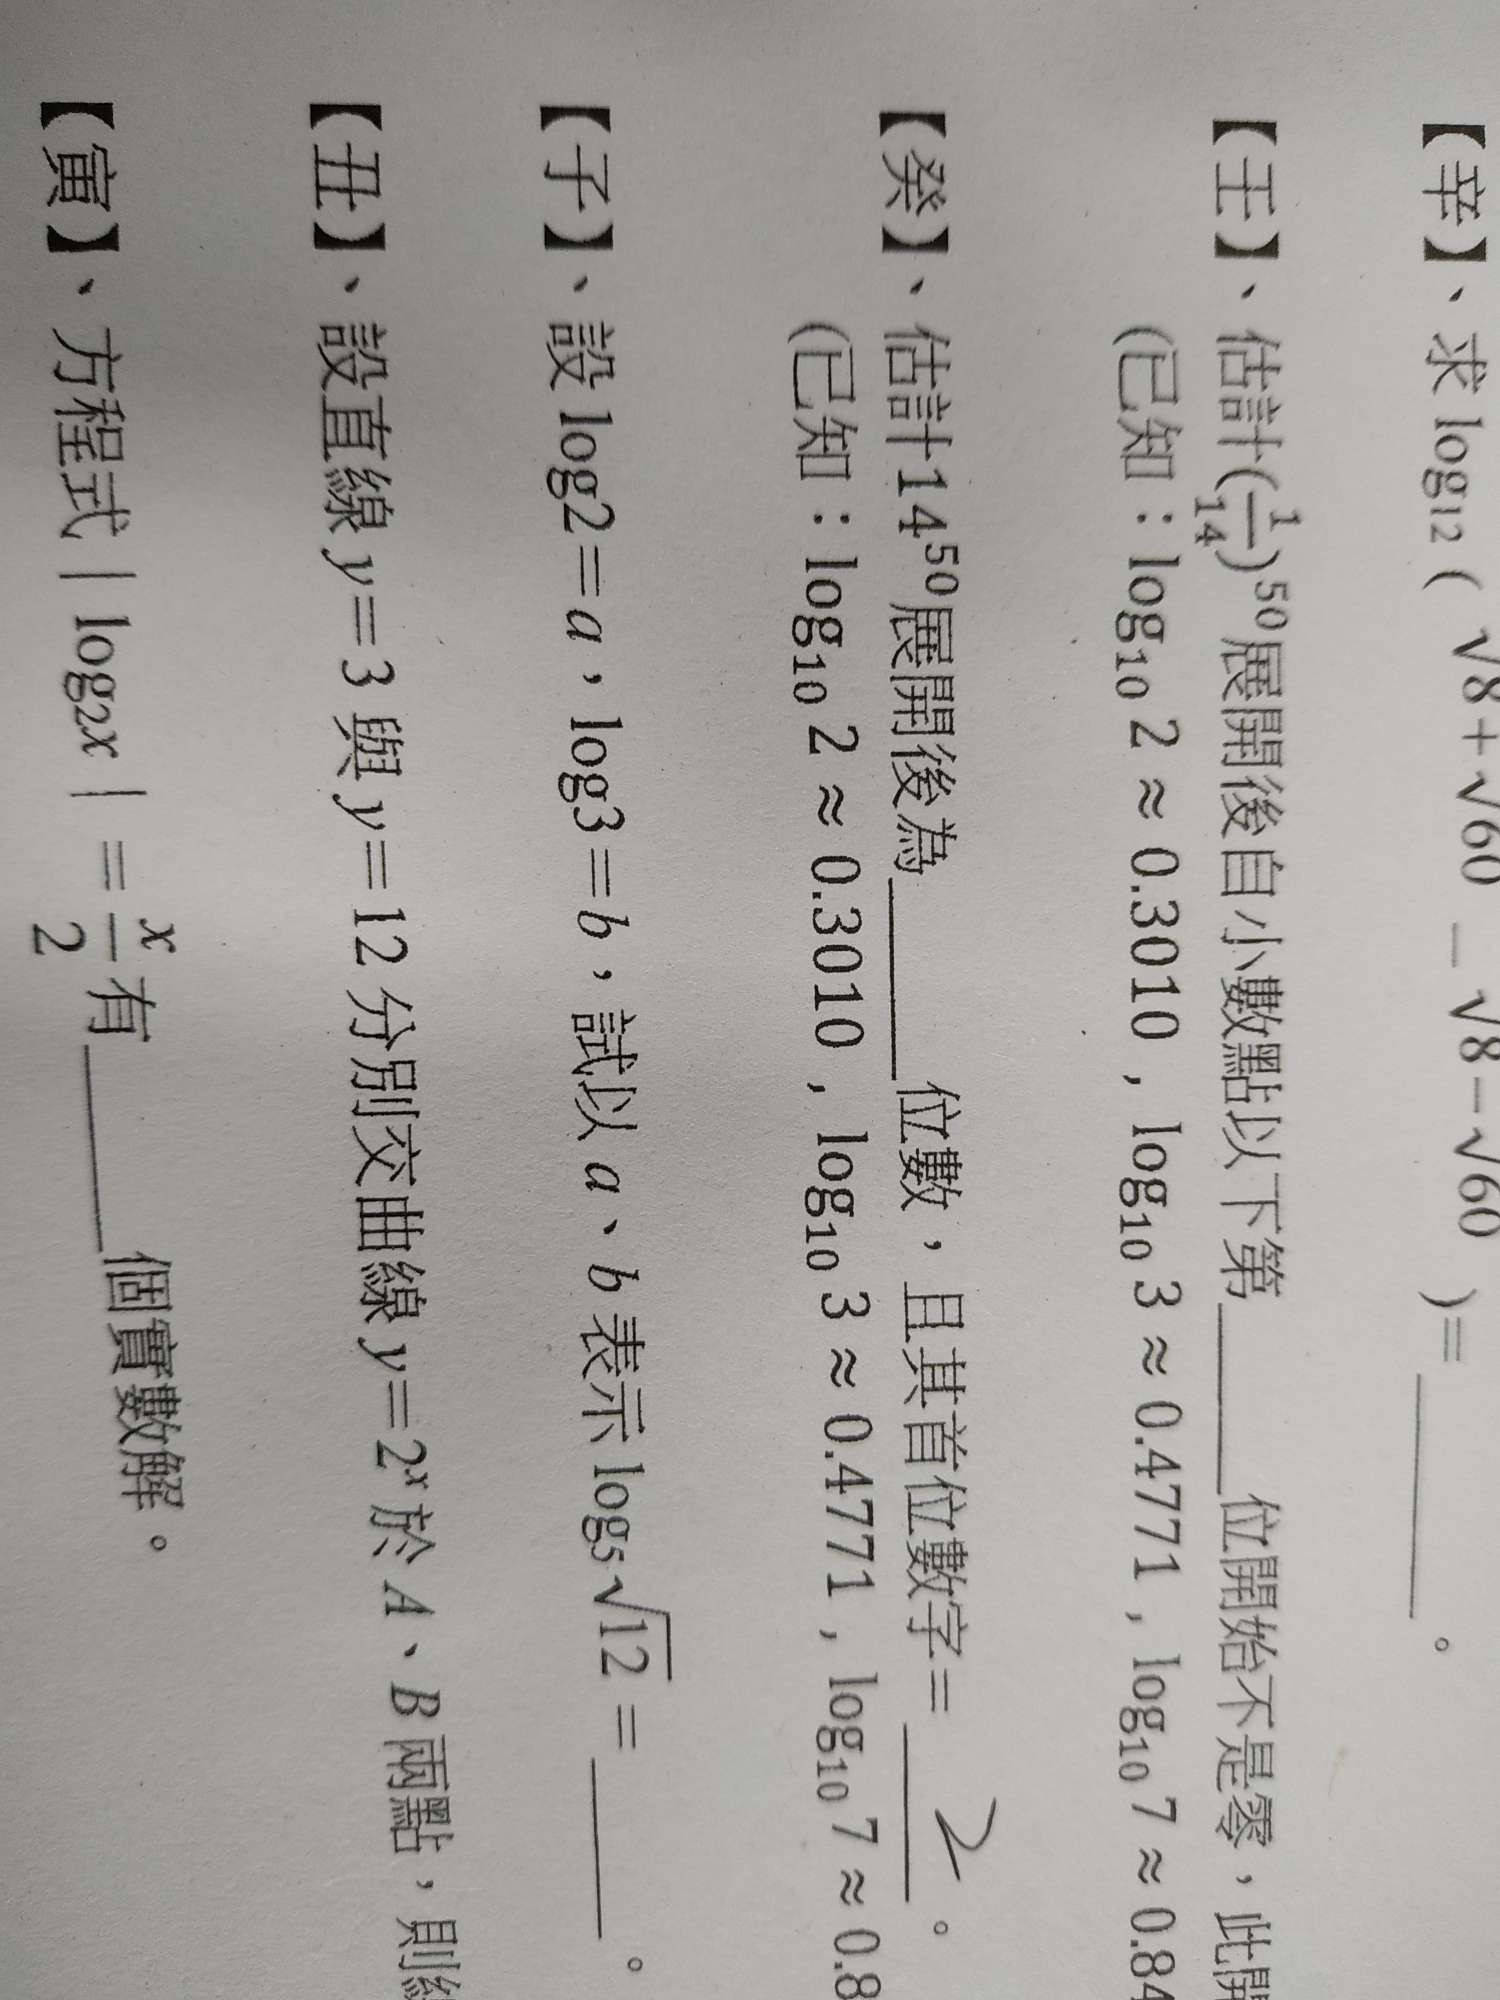 【辛】、求 log₁₂ ( √8+√60 － √8－√60 )= ______。
【壬】、估計(1/14)⁵⁰展開後自小數點以下第______位開始不是零，此開
(已知：log₁₀ 2 ≈ 0.3010，log₁₀ 3 ≈ 0.4771，log₁₀ 7 ≈ 0.84
【癸】、估計14⁵⁰展開後為______位數，且其首位數字＝ 2 。
(已知：log₁₀ 2 ≈ 0.3010，log₁₀ 3 ≈ 0.4771，log₁₀ 7 ≈ 0.8
【子】、設 log2＝a，log3＝b，試以 a、b 表示 log₅√12 ＝ ______。
【丑】、設直線 y＝3 與 y＝12 分別交曲線 y＝2ˣ 於 A、B 兩點，則
【寅】、方程式｜log₂x｜＝x/2 有______個實數解。